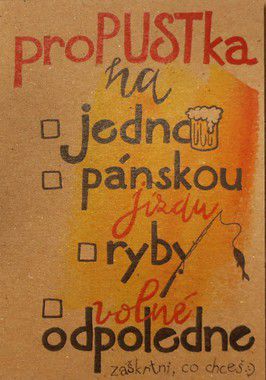 proPUSTka
na
jedno
pánskou
jízdu
ryby
volné
odpoledne
zaškrtni, co chceš:)